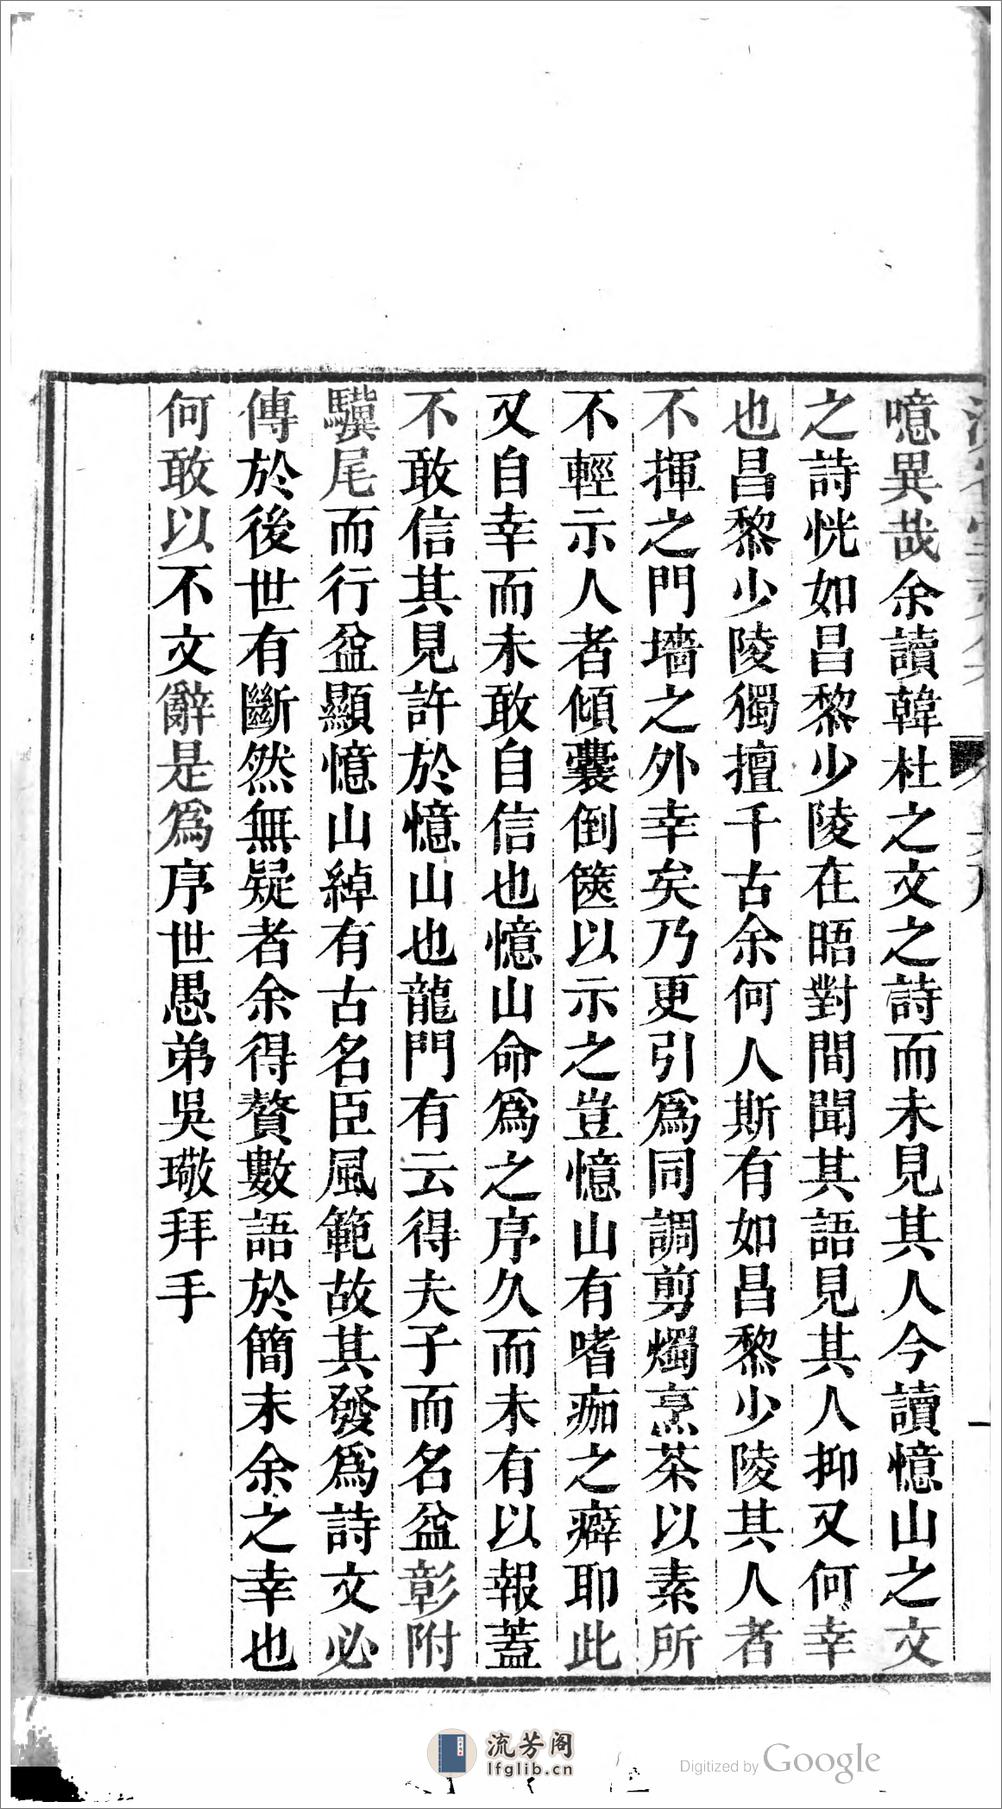 噫異哉余讀韓杜之文之詩而未見其人今讀憶山之文
之詩恍如昌黎少陵在晤對間聞其語見其人抑又何幸
也昌黎少陵獨擅千古余何人斯有如昌黎少陵其人者
不揮之門墻之外幸矣乃更引爲同調剪燭烹茶以素所
不輕示人者傾囊倒篋以示之豈憶山有嗜痂之癖耶此
又自幸而未敢自信也憶山命爲之序久而未有以報蓋
不敢信其見許於憶山也龍門有云得夫子而名益彰附
驥尾而行益顯憶山綽有古名臣風範故其發爲詩文必
傳於後世有斷然無疑者余得贅數語於簡末余之幸也
何敢以不文辭是爲序世愚弟吳璥拜手
流芳阁
lfglib.cn
Digitized by Google